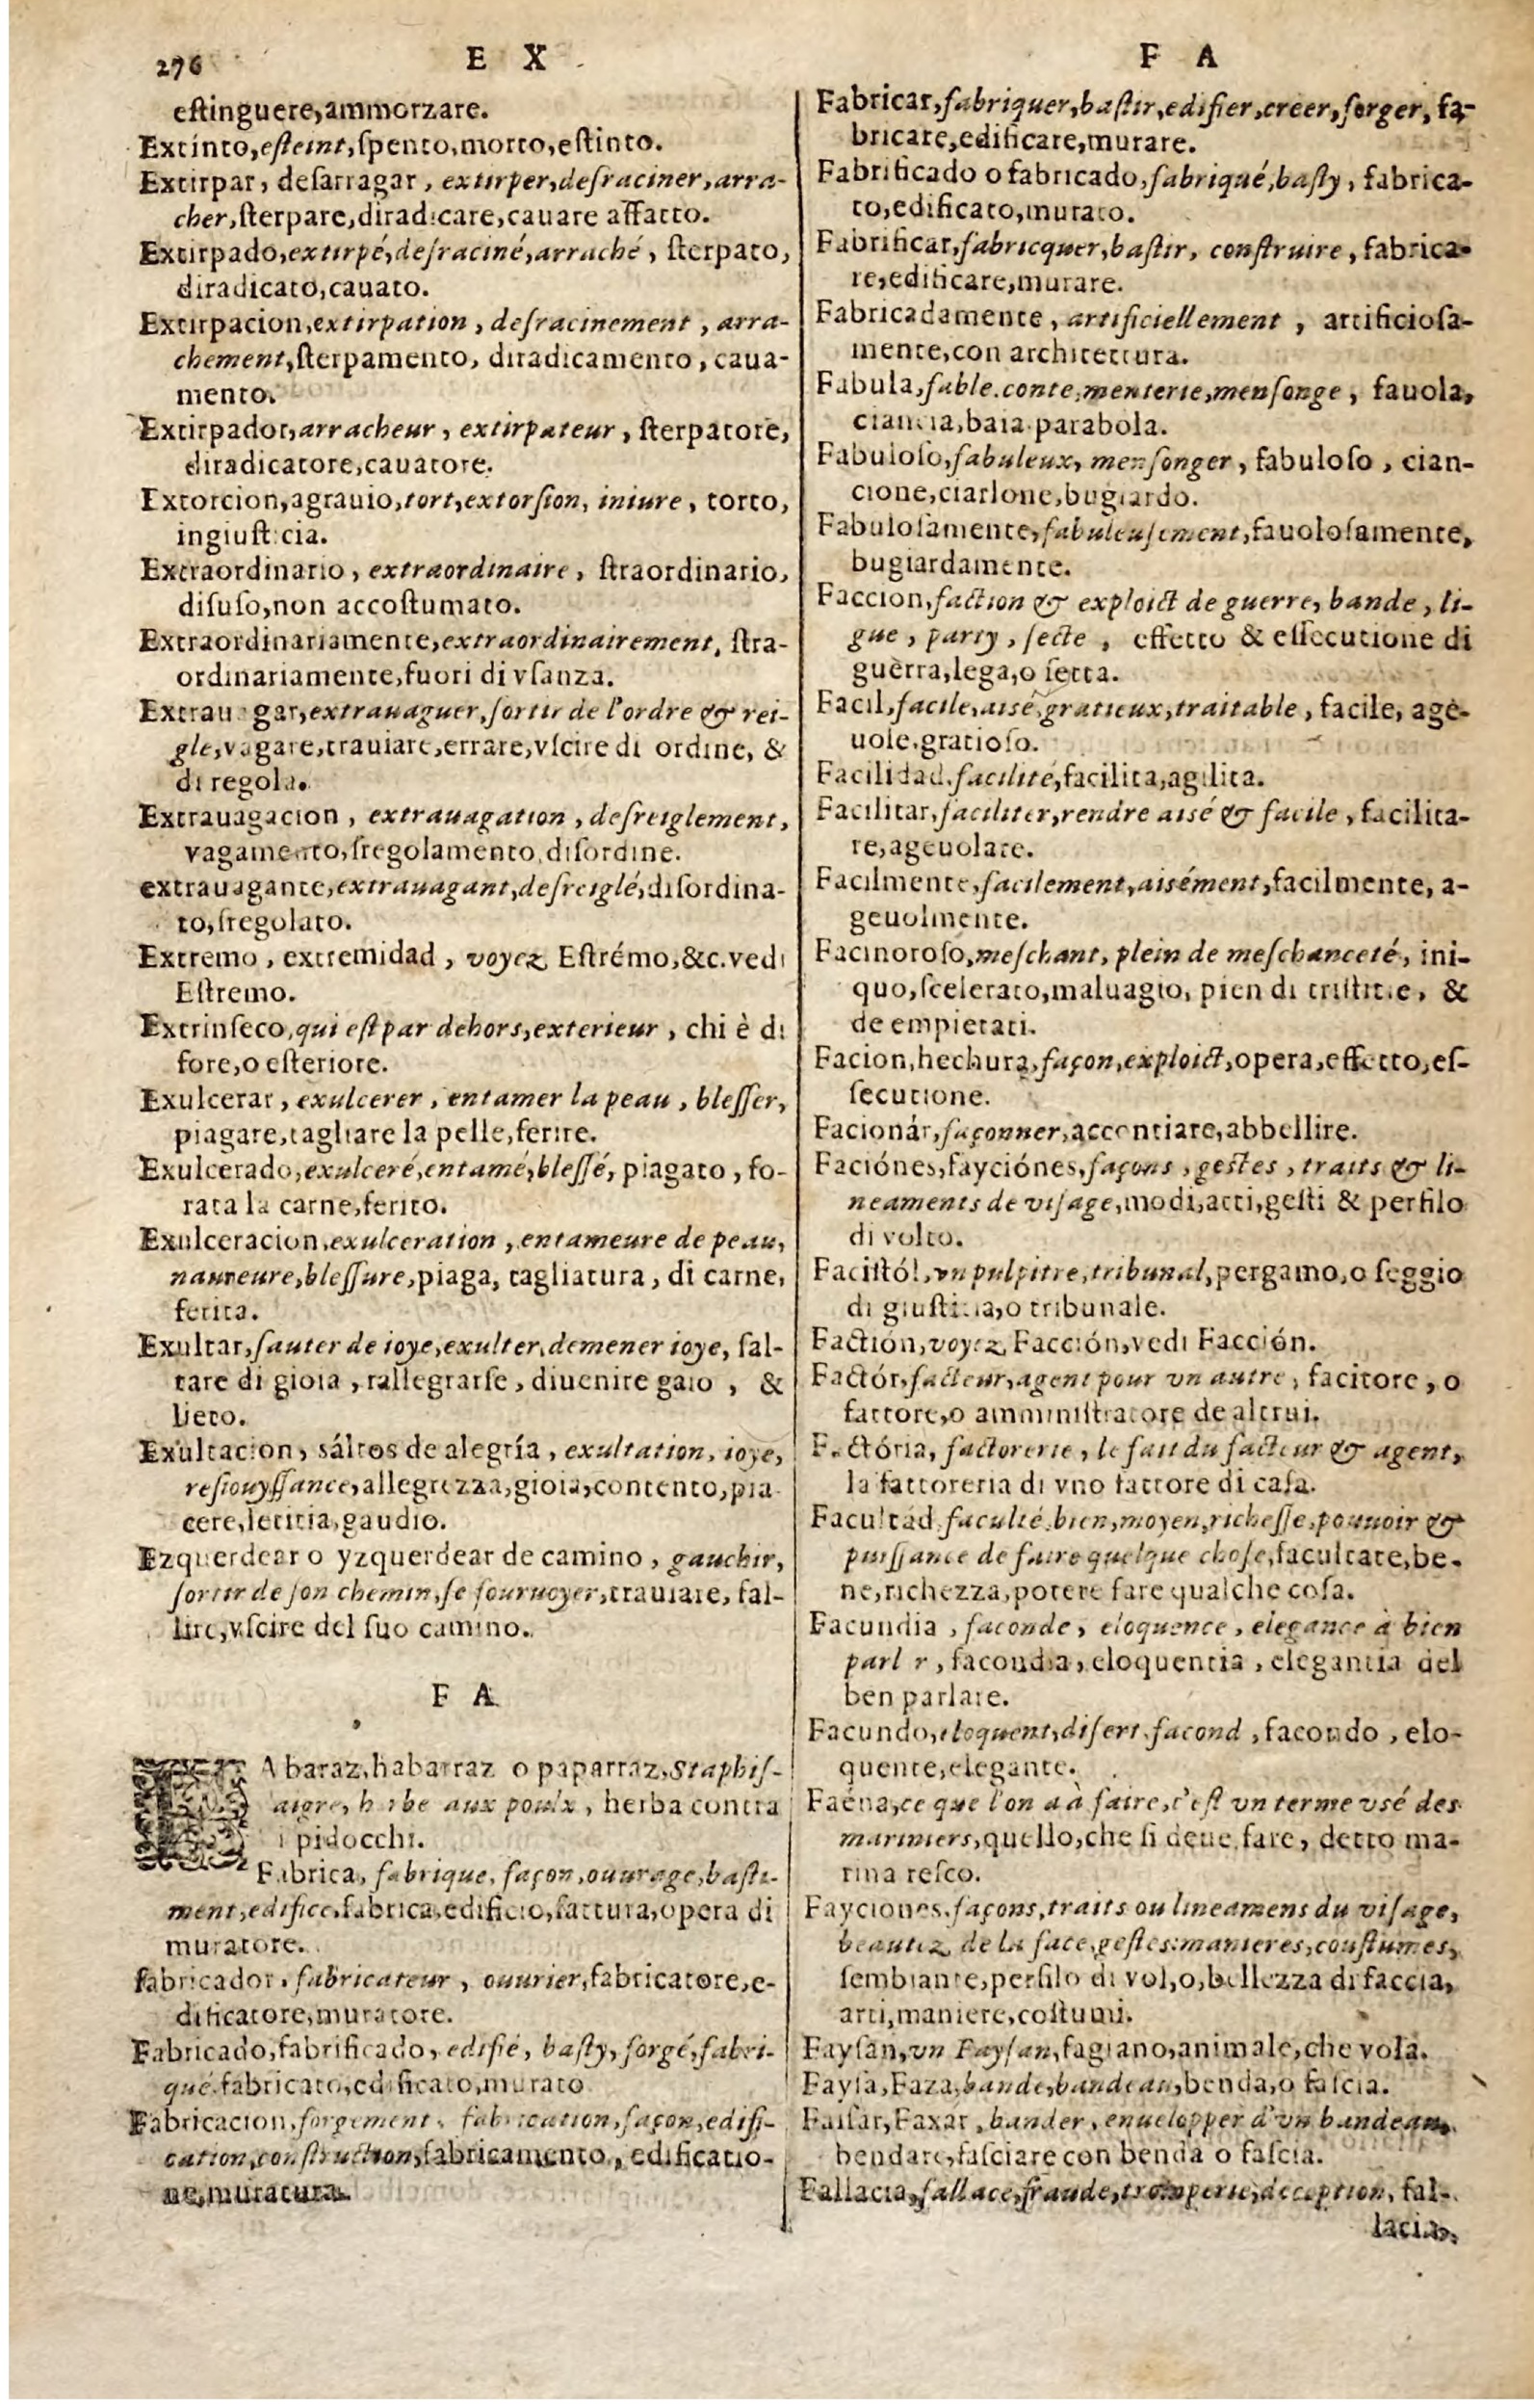 276
E X
F A
estinguere,ammorzare.
Extinto,esteint,spento,morto,estinto.
Extirpar, desarragar, extirper,desraciner,arra-
cher,sterpare,diradicare,cauare affatto.
Extirpado,extirpé,desraciné,arraché, sterpato,
diradicato,cauato.
Extirpacion,extirpation, desracinement, arra-
chement,sterpamento, diradicamento, caua-
mento.
Extirpador,arracheur, extirpateur, sterpatore,
diradicatore,cauatore.
Extorcion,agrauio,tort,extorsion, iniure, torto,
ingiusticia.
Extraordinario, extraordinaire, straordinario,
disuso,non accostumato.
Extraordinariamente,extraordinairement, stra-
ordinariamente,fuori di vsanza.
Extrauagar,extrauaguer,sortir de l'ordre & rei-
gle,vagare,trauiare,errare,vscire di ordine, &
di regola.
Extrauagacion, extrauagation, desreiglement,
vagamento,sregolamento,disordine.
extrauagante,extrauagant,desreiglé,disordina-
to,sregolato.
Extremo, extremidad, voyez Estrémo,&c.vedi
Estremo.
Extrinseco,qui est par dehors,exterieur, chi è di
fore,o esteriore.
Exulcerar, exulcerer, entamer la peau, blesser,
piagare,tagliare la pelle,ferire.
Exulcerado,exulceré,entamé,blessé, piagato, fo-
rata la carne,ferito.
Exulceracion,exulceration, entameure de peau,
naureure,blessure,piaga, tagliatura, di carne,
ferita.
Exultar,sauter de ioye,exulter,demener ioye, sal-
tare di gioia, rallegrarse, diuenire gaio, &
lieto.
Exultacion, sáltos de alegría, exultation, ioye,
resiouyssance,allegrezza,gioia,contento,pia
cere,letitia,gaudio.
Ezquerdear o yzquerdear de camino, gauchir,
sortir de son chemin,se fouruoyer,trauiare, fal-
lire,vscire del suo camino.
F A
FAbaraz,habarraz o paparraz,Staphis-
aigre, herbe aux poulx, herba contra
i pidocchi.
Fabrica, fabrique, façon,ouurage,basti-
ment,edifice,fabrica,edificio,fattura,opera di
muratore.
fabricador, fabricateur, ouurier,fabricatore,e-
dificatore,muratore.
Fabricado,fabrificado, edifié, basty, forgé,fabri-
qué,fabricato,edificato,murato
Fabricacion,forgement, fabrication,façon,edifi-
cation,construction,fabricamento, edificatio-
ne,muratura.
Fabricar,fabriquer,bastir,edifier,creer,forger, fa-
bricare,edificare,murare.
Fabrificado o fabricado,fabriqué,basty, fabrica-
to,edificato,murato.
Fabrificar,fabricquer,bastir, construire, fabrica-
re,edificare,murare.
Fabricadamente, artificiellement, artificiosa-
mente,con architettura.
Fabula,fable.conte,menterie,mensonge, fauola,
ciancia,baia.parabola.
Fabuloso,fabuleux, mensonger, fabuloso, cian-
cione,ciarlone,bugiardo.
Fabulosamente,fabuleusement,fauolosamente,
bugiardamente.
Faccion,faction & exploict de guerre, bande, li-
gue, party, secte, effetto & essecutione di
guerra,lega,o setta.
Facil,facile,aisé,gratieux,traitable, facile, age-
uole,gratioso.
Facilidad,facilité,facilita,agilita.
Facilitar,faciliter,rendre aisé & facile, facilita-
re,ageuolare.
Facilmente,facilement,aisément,facilmente, a-
geuolmente.
Facinoroso,meschant, plein de meschanceté, ini-
quo,scelerato,maluagio, pien di tristitie, &
de empietati.
Facion,hechura,façon,exploict,opera,effetto,es-
secutione.
Facionár,façonner,accontiare,abbellire.
Faciónes,fayciónes,façons, gestes, traits & li-
neaments de visage,modi,atti,gesti & perfilo
di volto.
Facistól,vn pulpitre,tribunal,pergamo,o seggio
di giustitia,o tribunale.
Factión,voyez Facción,vedi Facción.
Factór,facteur,agent pour vn autre, facitore, o
fattore,o amministratore de altrui.
Factória, factorerie, le fait du facteur & agent,
la fattoreria di vno fattore di casa.
Facultád,faculté,bien,moyen,richesse,pouuoir &
puissance de faire quelque chose,facultate,be-
ne,richezza,potere fare qualche cosa.
Facundia, faconde, eloquence, elegance à bien
parl r, facondia, eloquentia, elegantia del
ben parlare.
Facundo,eloquent,disert,facond, facondo, elo-
quente,elegante.
Faéna,ce que l'on a à faire,c'est vn terme vsé des
mariniers,quello,che si deue fare, detto ma-
rina resco.
Fayciones,façons,traits ou lineamens du visage,
beautez de la face,gestes:manieres,coustumes,
sembiante,perfilo di vol,o,bellezza di faccia,
arti,maniere,costumi.
Faysan,vn Faysan,fagiano,animale,che vola.
Faysa,Faza,bande,bandeau,benda,o fascia.
Faisar,Faxár, bander, enuelopper d'vn bandeau,
bendare,fasciare con benda o fascia.
Fallacia,fallace,fraude,tromperie,deception, fal-
lacia,